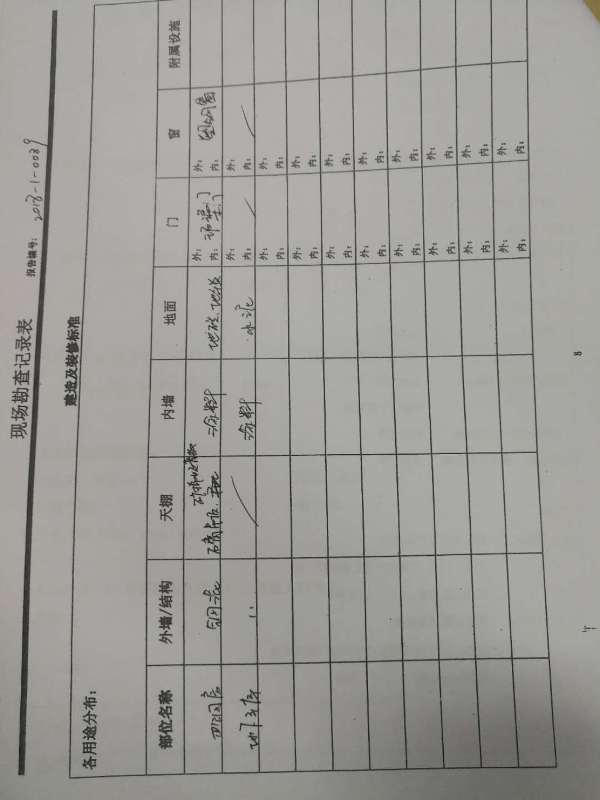 现场勘查记录表
报告编号： 2018-1-0029
建造及装修标准
各用途分布：
部位名称 外墙/结构 天棚 内墙 地面 门 窗 附属设施
涂料 地砖、地板 外： 内： 外： 内： 塑钢窗
地下室 涂料 水泥 外： 内： 外： 内：
外： 内： 外： 内：
外： 内： 外： 内：
外： 内： 外： 内：
外： 内： 外： 内：
外： 内： 外： 内：
外： 内： 外： 内：
外： 内： 外： 内：
外： 内： 外： 内：
8